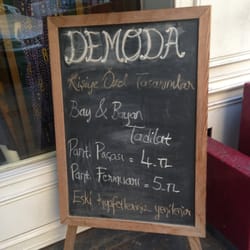 DEMODA
Kişiye Özel Tasarımlar
Bay & Bayan
Tadilat
Pant. Paçası = 4.TL
Pant. Fermuarı = 5.TL
Eski yenilenir